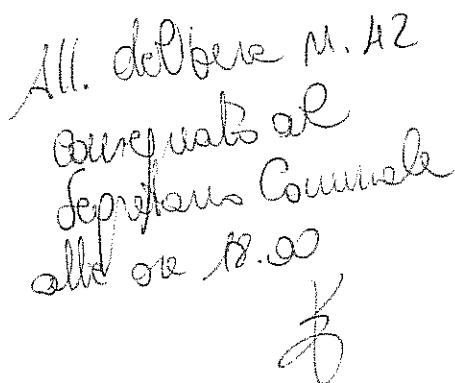 All. delibera N. 42
consegnato al
Segretario Comunale
alle ore 18.00